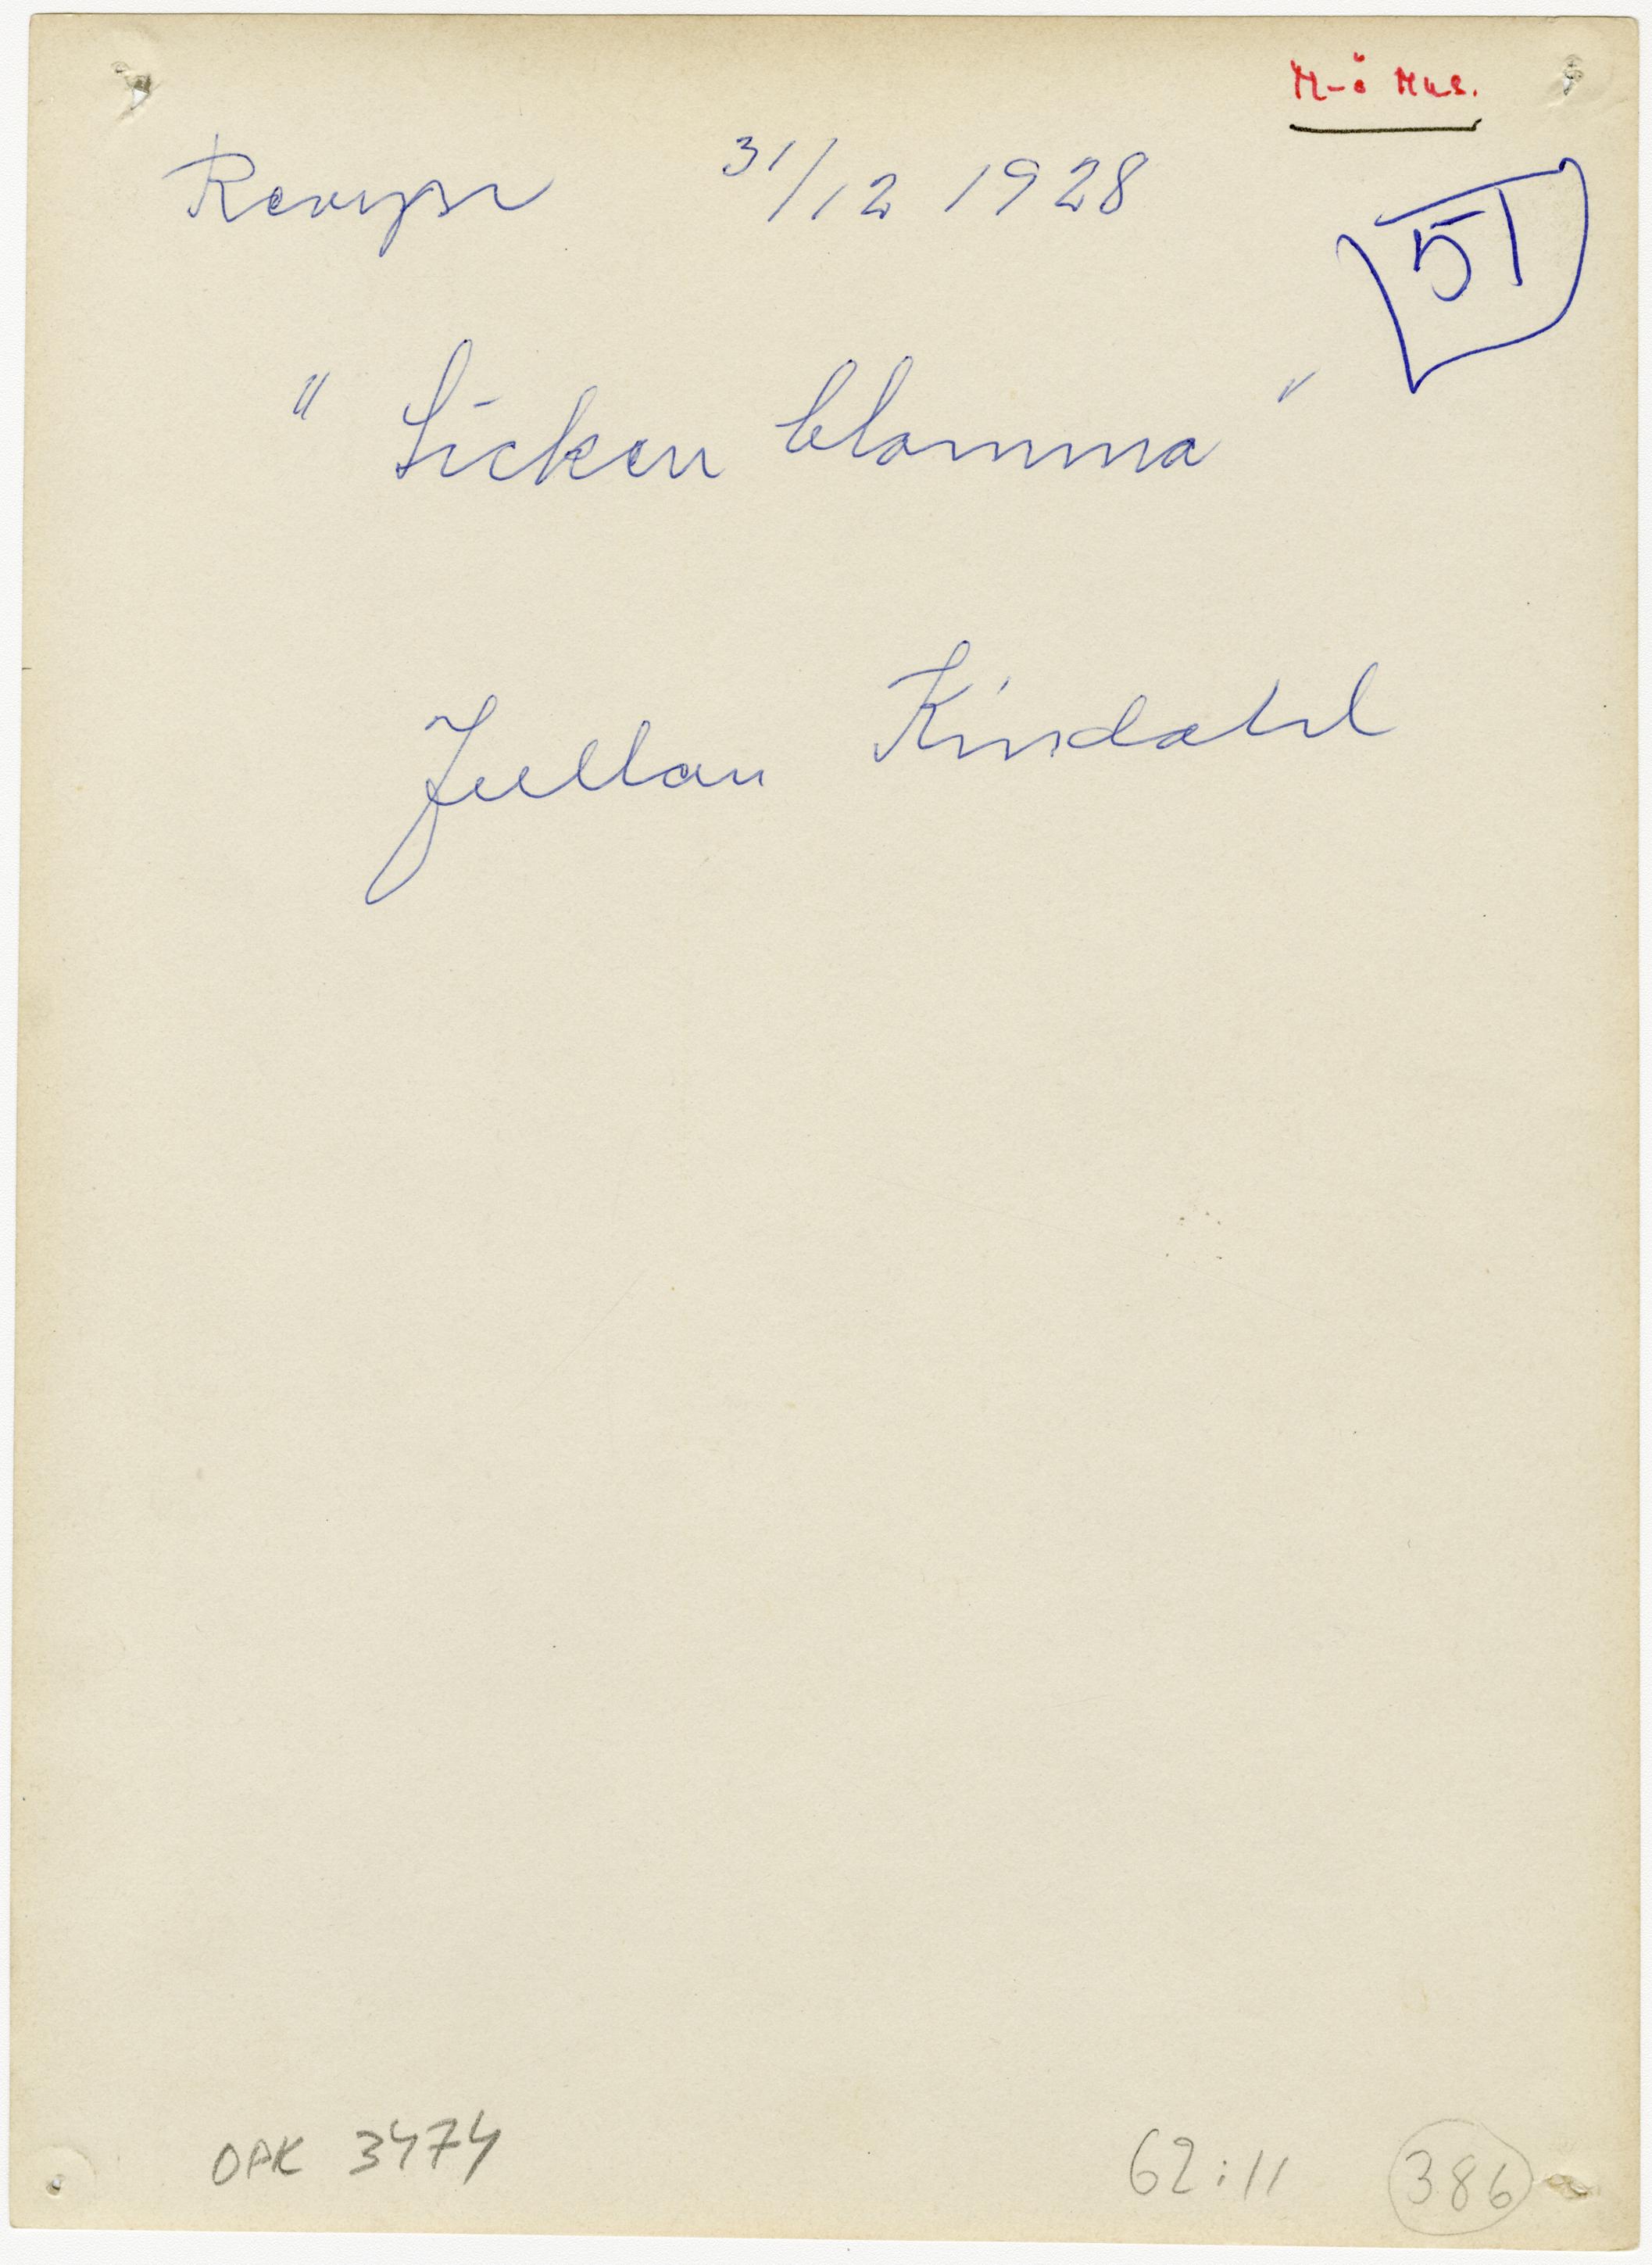 M-ö Mus.
31/12 1928
51
"Sicken blomma"
Jullan Kindahl
OPK 3474
62:11
386